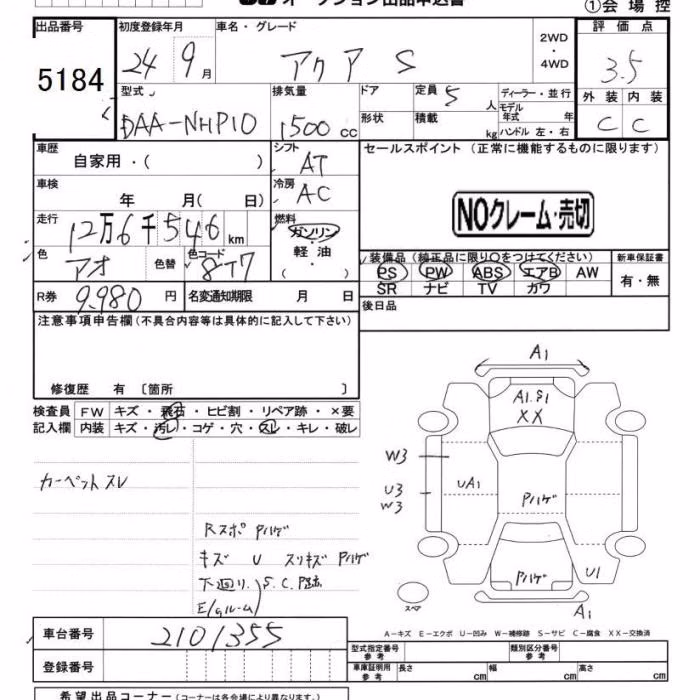 オークション出品申込書
①会場控
出品番号
5184
初度登録年月
24 9月
車名・グレード
アクア S
2WD
・
4WD
評価点
3.5
型式
DAA-NHP10
排気量
1500cc
ドア
定員
5人
ディーラー・並行
モデル年式 年
形状
積載 kg
ハンドル 左・右
外装 内装
C C
車歴
自家用・( )
シフト
AT
セールスポイント (正常に機能するものに限ります)
車検
年 月( 日)
冷房
AC
NOクレーム・売切
走行
12万6千546km
燃料
ガソリン
軽油
色
アオ
色替
色コード
8T7
装備品(純正品に限り○をつけてください)
PS PW ABS エアB AW
SR ナビ TV カワ
新車保証書
有・無
R券 9,980円
名変通知期限 月 日
後日品
注意事項申告欄(不具合内容等は具体的に記入して下さい)
修復歴 有 〔箇所 〕
検査員記入欄
FW キズ・飛石・ヒビ割・リペア跡・×要
内装 キズ・汚レ・コゲ・穴・スレ・キレ・破レ
カーペットスレ
Rスポ Pハゲ
キズ U スリキズ Pハゲ
下廻リ S.C.P跡
E/gルーム
A1
A1.S1
XX
W3
U3
W3
UA1
Pハゲ
Pハゲ
U1
A1
スペア
A-キズ E-エクボ U-凹み W-補修跡 S-サビ C-腐食 XX-交換済
車台番号 2101355
登録番号
型式指定番号 参考
類別区分番号 参考
車庫証明用 参考
長さ cm
幅 cm
高さ cm
希望出品コーナー(コーナーは各会場により異なります。)